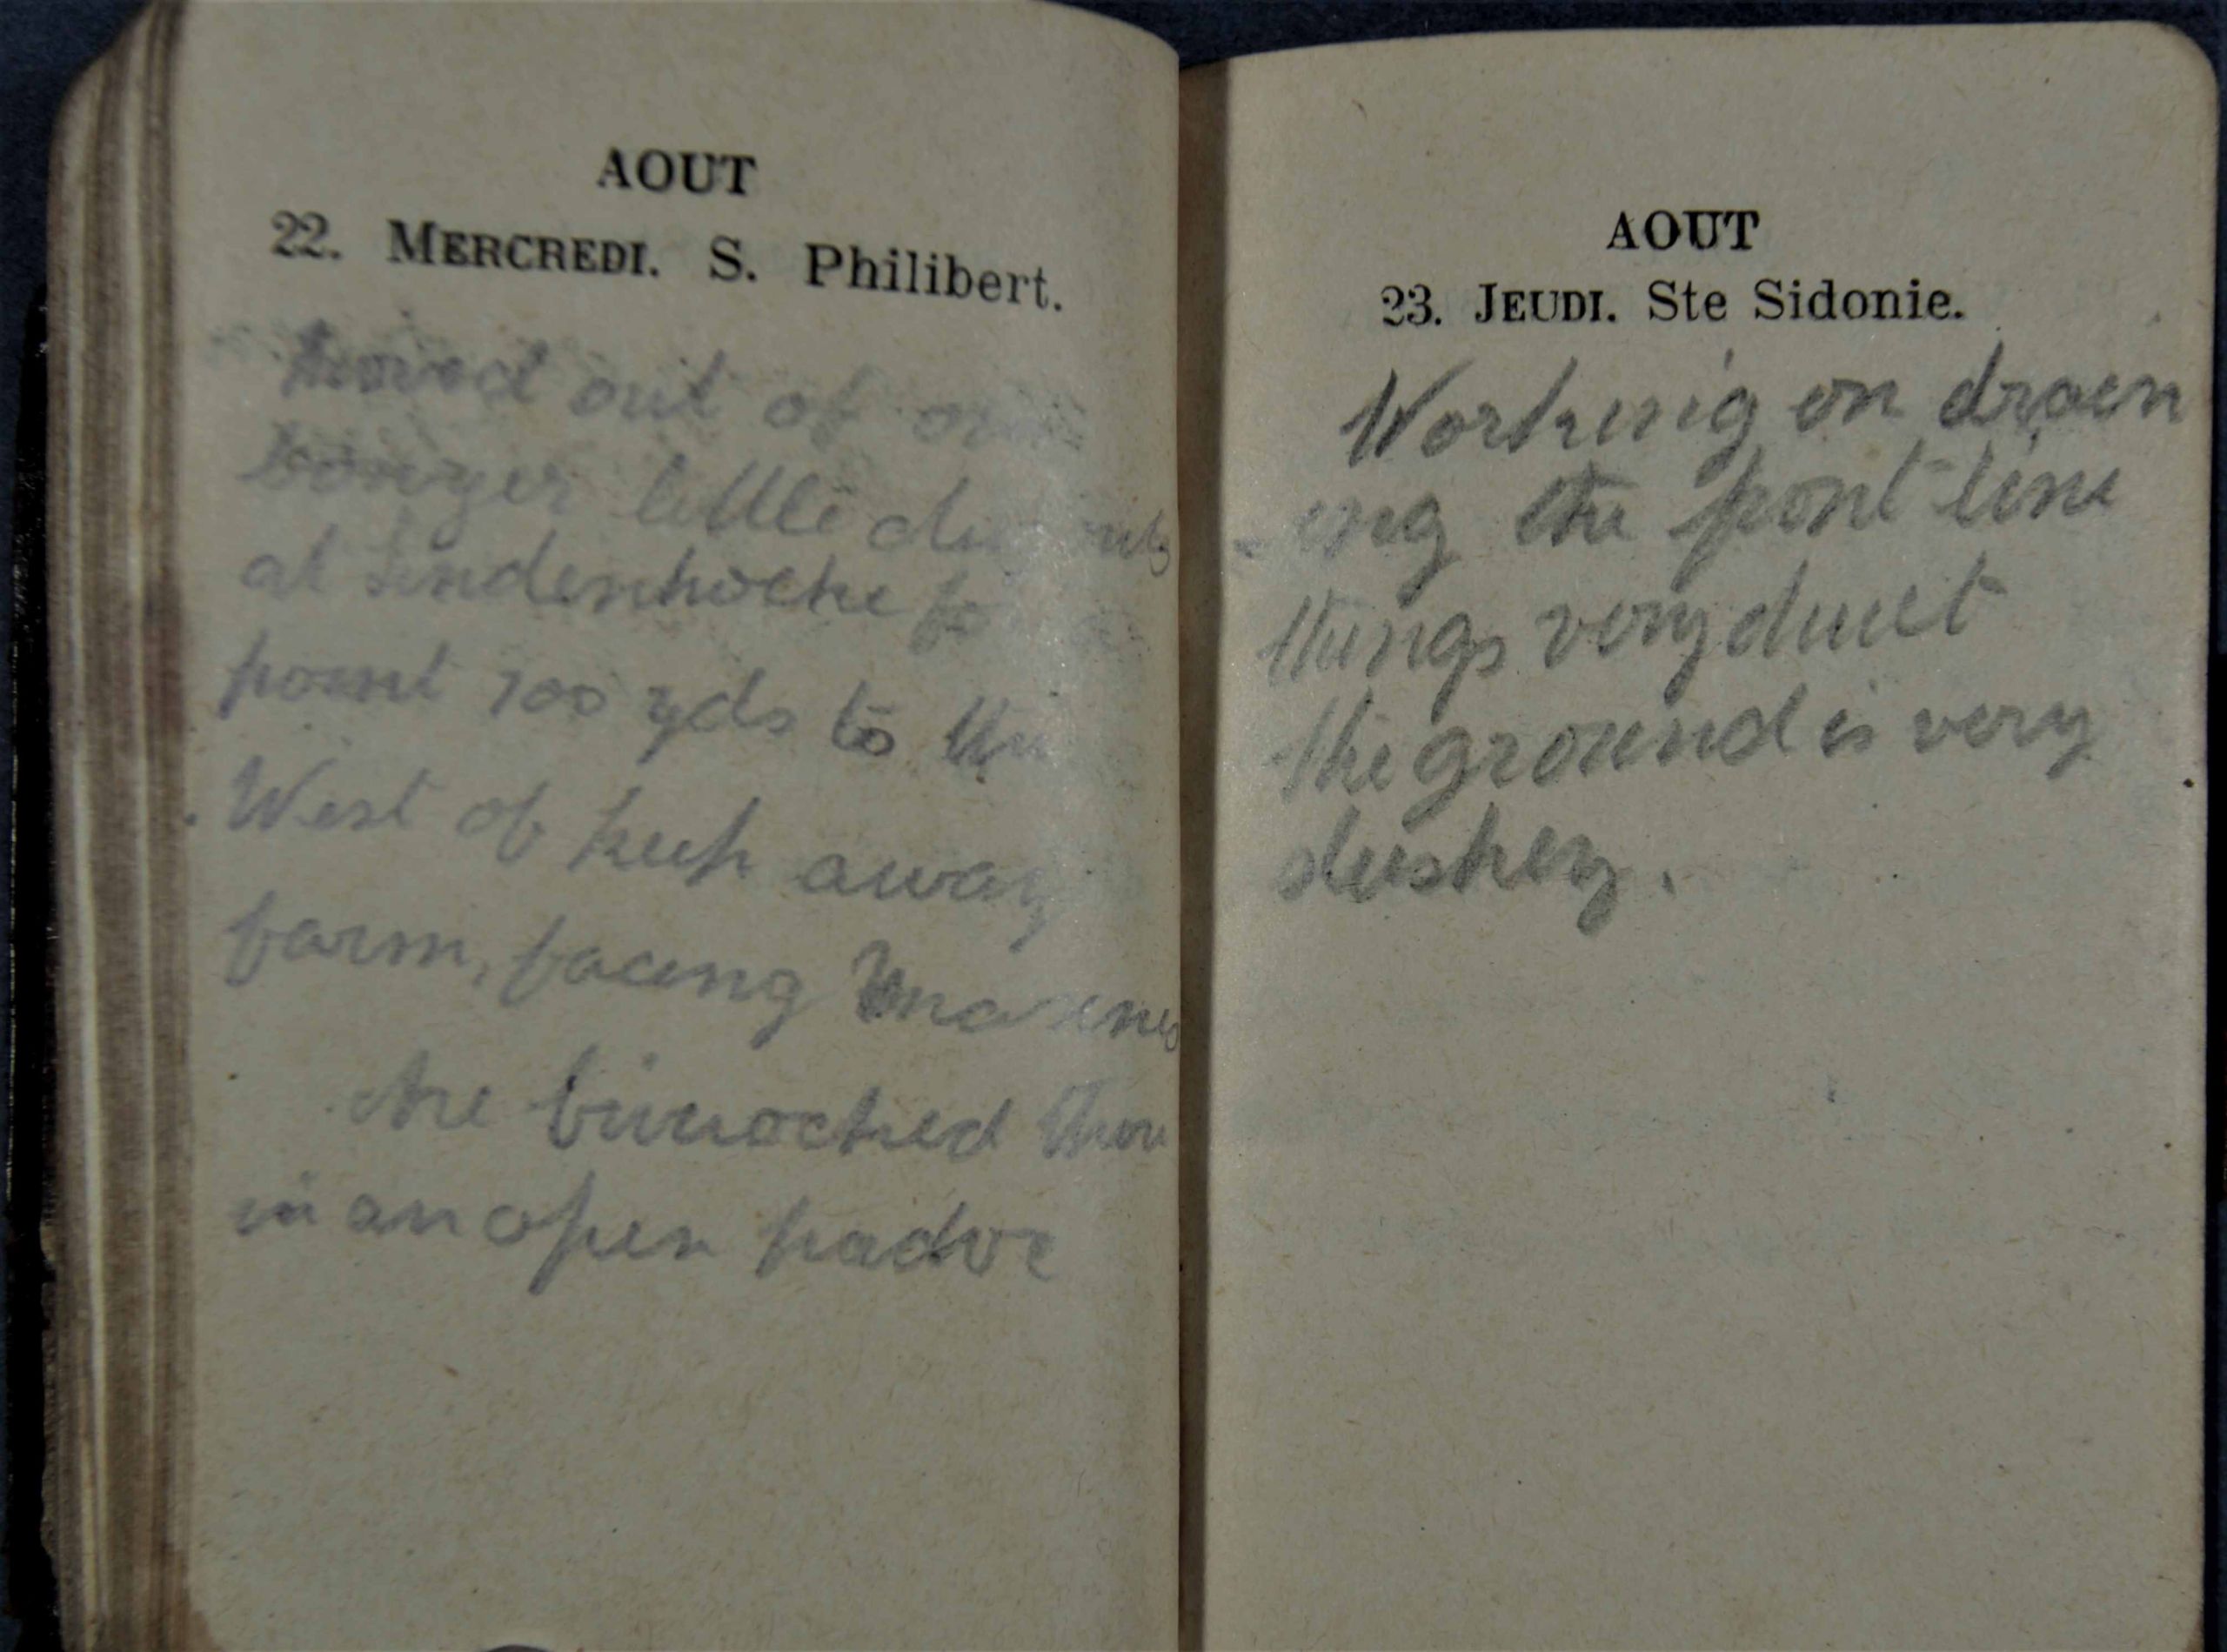 AOUT
22. MERCREDI. S. Philibert.
moved out of our
bonzer little dug outs
at Lindenhoeke to a
point 700 yds to the
West of Keep away
farm, facing Messines
We bivuocked there
in an open
AOUT
23. JEUDI. Ste Sidonie.
Working on draen
-ing the front line
things very quiet
the ground is very
slushey.